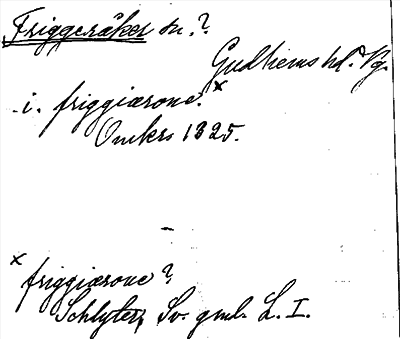 Friggeråker sn.?
Gudhems hd. Vg.
i. friggiærone.x
Omkr. 1325.
x friggiærone?
Schlyter, Sv. gml. L. I.